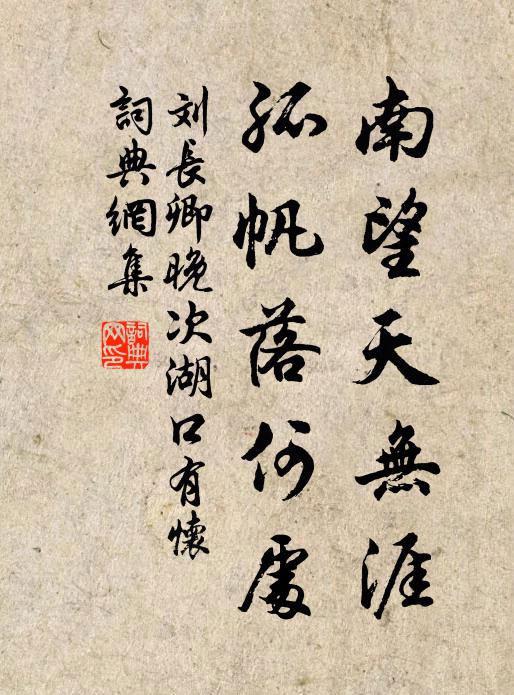 南望天無涯
孤帆落何處
刘長卿晚次湖口有懷
詞典網集
詞典網印